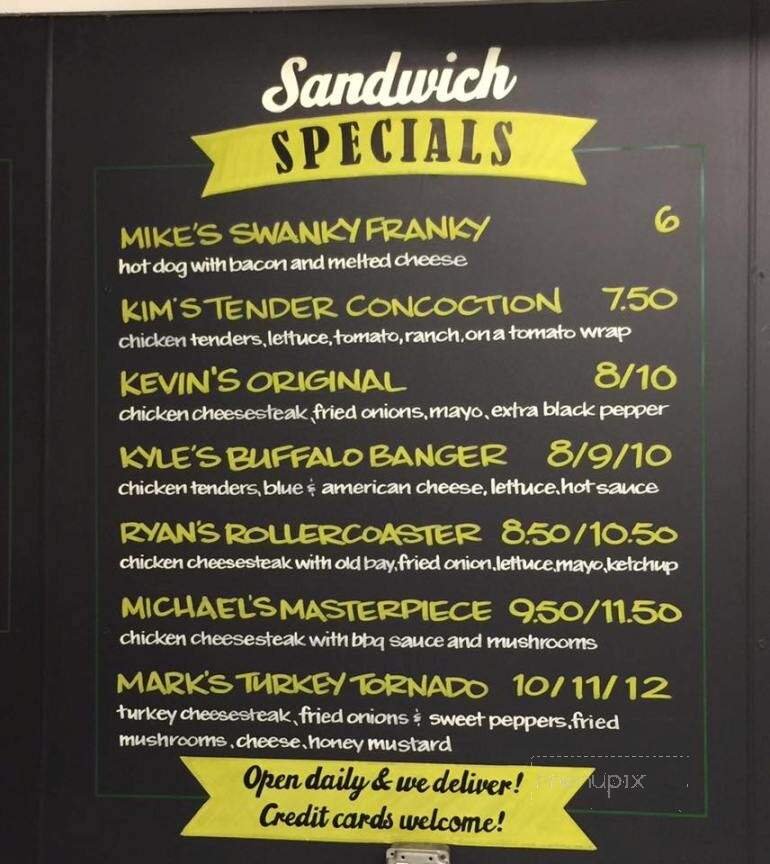 Sandwich
SPECIALS
MIKE'S SWANKY FRANKY 6
hot dog with bacon and melted cheese
KIM'S TENDER CONCOCTION 7.50
chicken tenders, lettuce, tomato, ranch, on a tomato wrap
KEVIN'S ORIGINAL 8/10
chicken cheesesteak, fried onions, mayo, extra black pepper
KYLE'S BUFFALO BANGER 8/9/10
chicken tenders, blue & american cheese, lettuce, hot sauce
RYAN'S ROLLERCOASTER 8.50/10.50
chicken cheesesteak with old bay, fried onion, lettuce, mayo, ketchup
MICHAEL'S MASTERPIECE 9.50/11.50
chicken cheesesteak with bbq sauce and mushrooms
MARK'S TURKEY TORNADO 10/11/12
turkey cheesesteak, fried onions & sweet peppers, fried
mushrooms, cheese, honey mustard
Open daily & we deliver!
Credit cards welcome!
menupix